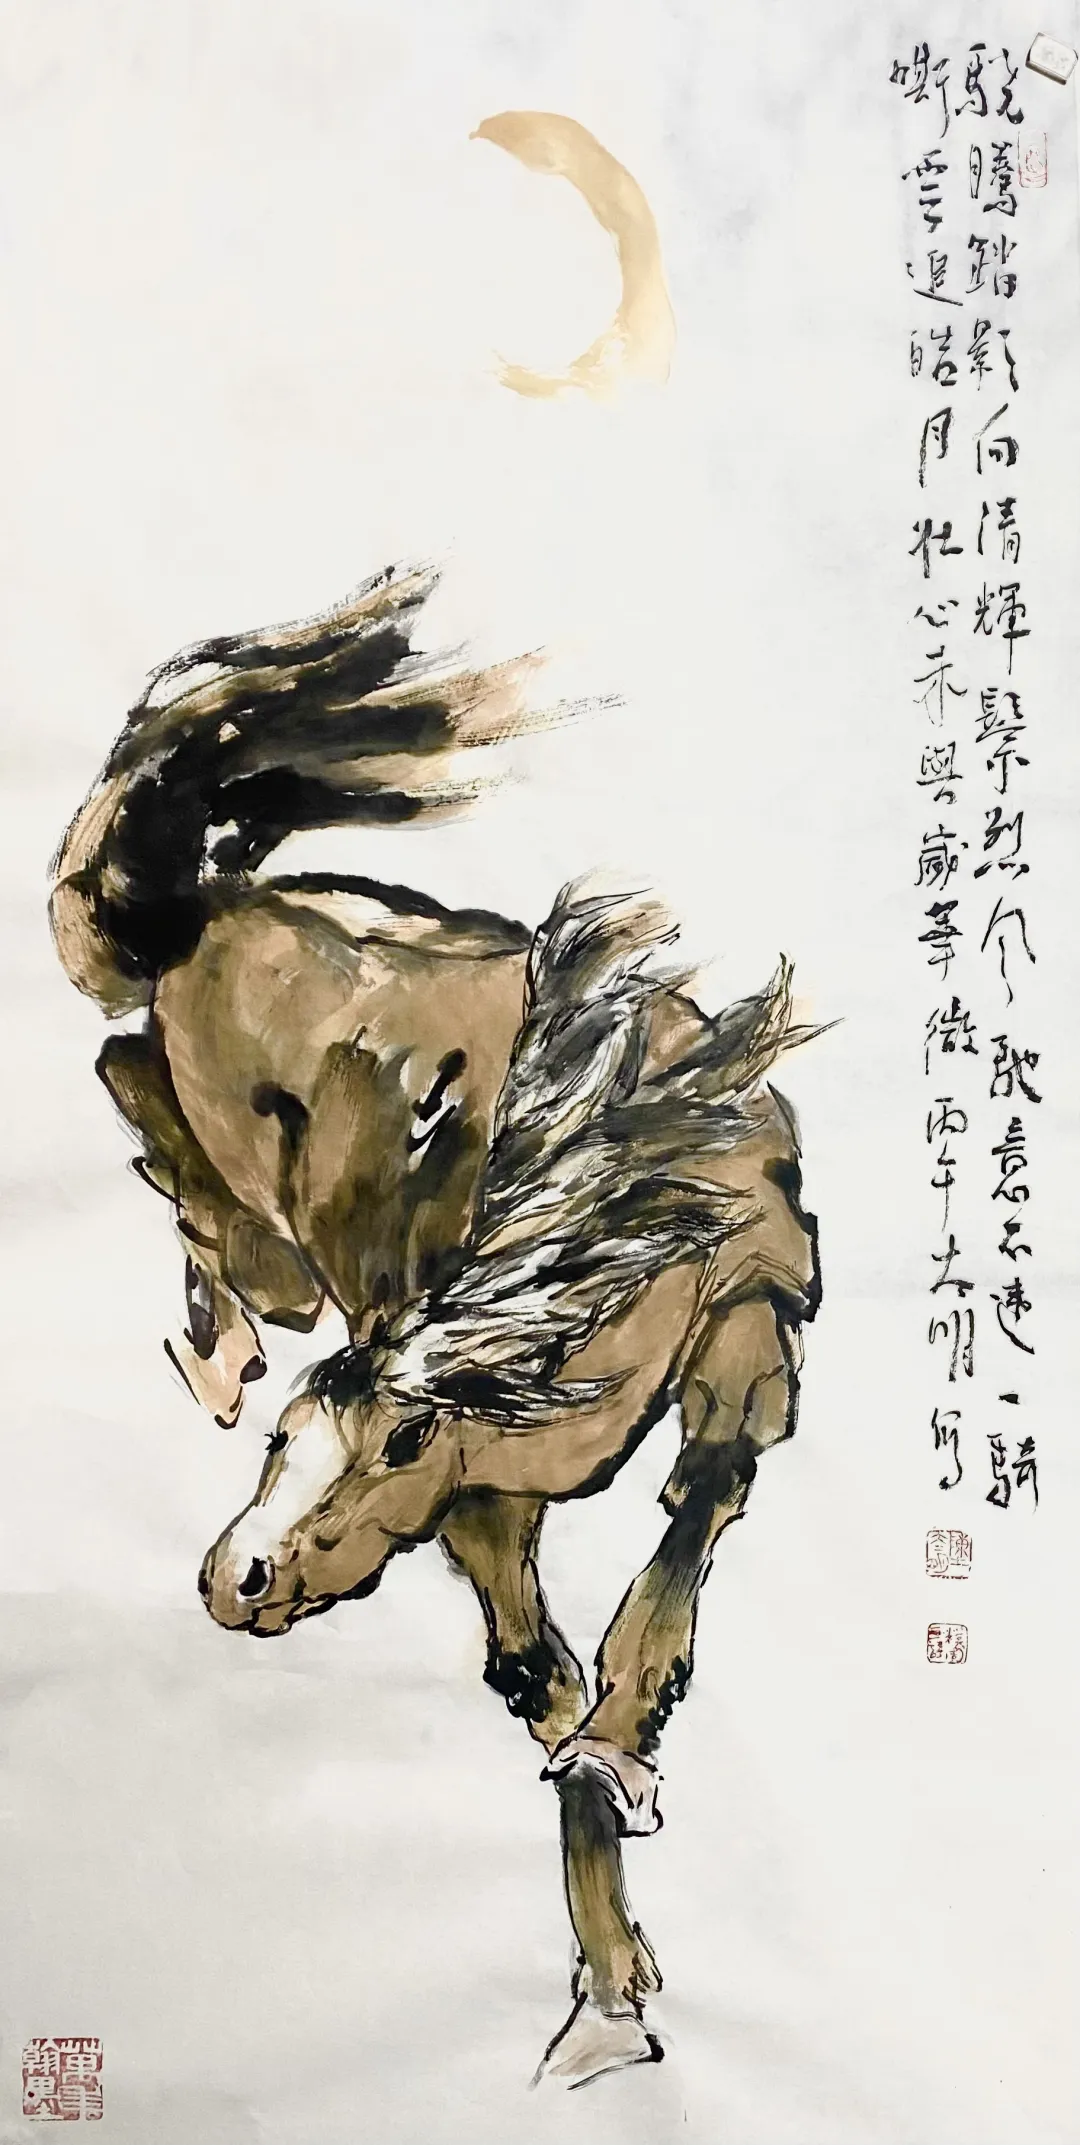 驍騰踏影向清輝鬃烈風馳意不違一騎
嘶雲追皓月壯心未與歲華微丙午大明寫
萬
翰墨